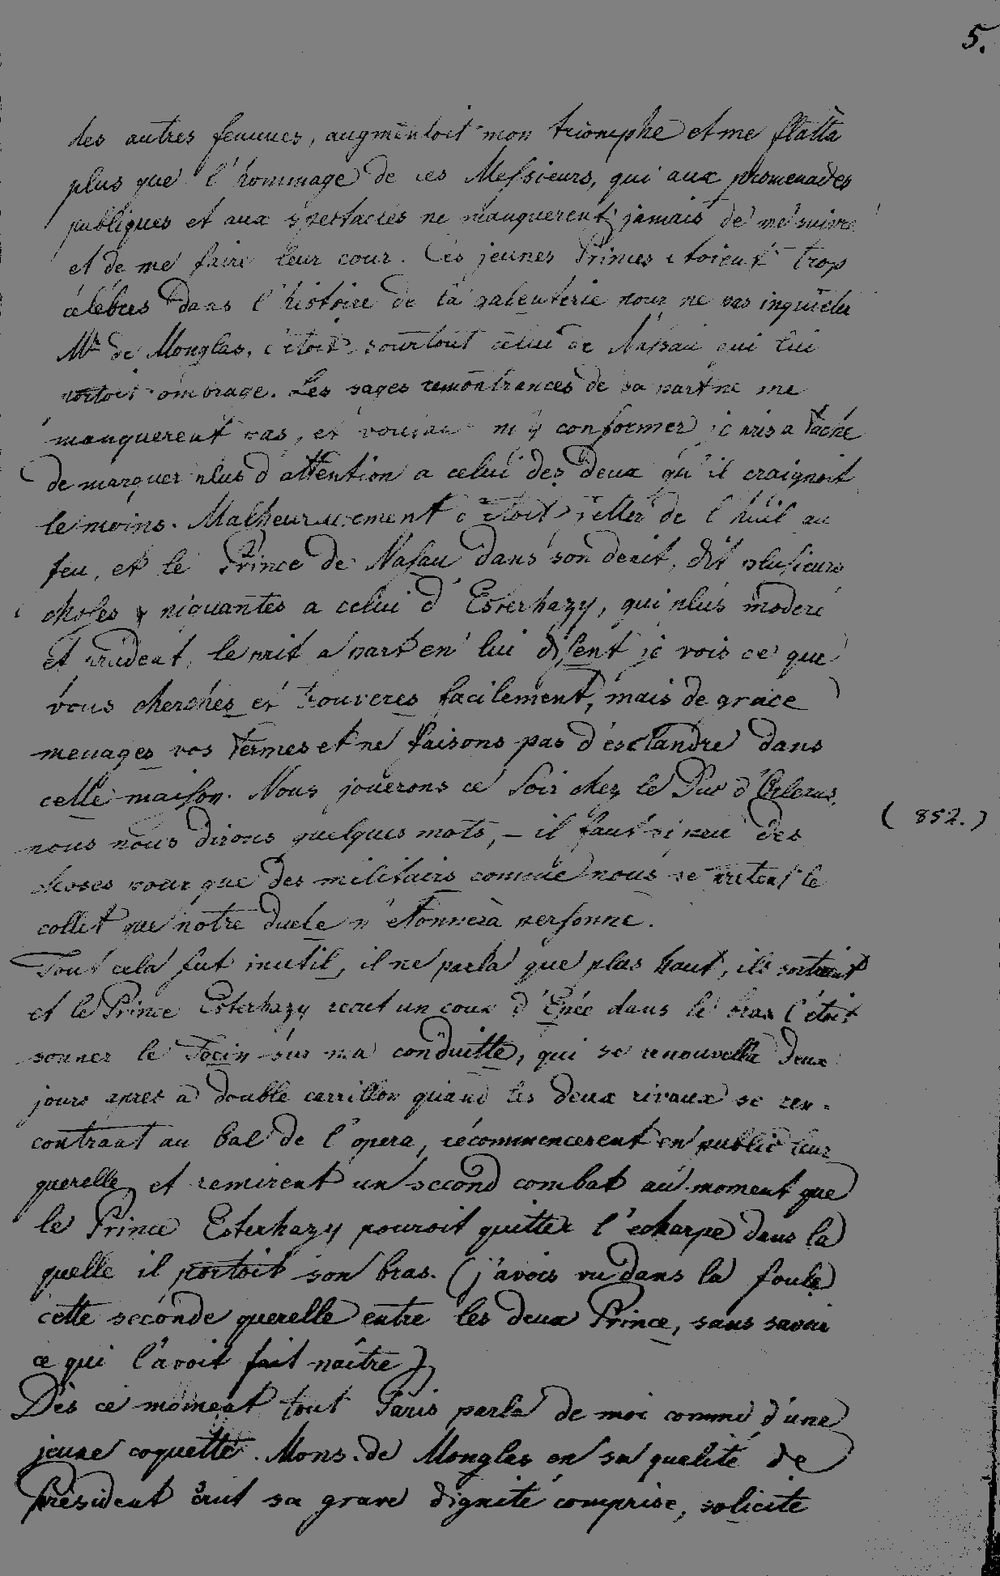 5.
des autres femmes, augmentoit mon triomphe et me flatta
plus que l'hommage de ces Messieurs, qui aux promenades
publiques et aux spectacles ne manquerent jamais de me suivre
et de me faire leur cour. Ces jeunes Princes etoient trop
célèbres dans l'histoire de la galenterie pour ne pas inquièter
Mr de Monglas, c'étoit sourtout celui de Nassau qui lui
portoit ombrage. Les sages remontrances de sa part ne me
manquerent pas, et voulant m'y conformer je pris a tache
de marquer plus d'attention a celui des deux qu'il craignoit
le moins. Malheureusement c'étoit jetter de l'huil au
feu, et le Prince de Nassau dans son depit, dit plusieurs
choses piquantes a celui d'Esterhazy, qui plus moderé
et prudent, le prit a part en lui disent je vois ce que
vous cherchés et trouveres facilement, mais de grace
menages vos termes et ne faisons pas d'esclandre dans
cette maison. Nous jouerons ce soir chez le Duc d'Orleans,
nous nous dirons quelques mots, – il faut si peu des
(852.)
choses pour que des militairs comme nous se pretent le
collet que notre duele n'etonnera personne.
Tout cela fut inutil, il ne parla que plus haut, ils sortirent
et le Prince Esterhazy recut un coup d'Epée dans le bras c'étoit
sonner le Tocin sur ma conduitte, qui se renouvella deux
jours apres a double carrillon quand les deux rivaux se ren-
contrant au bal de l'opera, récommencerent en public leur
querelle et remirent un second combat au moment que
le Prince Esterhazy pouroit quitter l'echarpe dans la
quelle il portoit son bras. (j'avois vu dans la foule
cette seconde querelle entre les deux Prince, sans savoir
ce qui l'avoit fait naître)
Dès ce moment tout Paris parla de moi comme d'une
jeune coquette. Mons. de Monglas en sa qualité de
Président crut sa grave dignité comprise, solicite